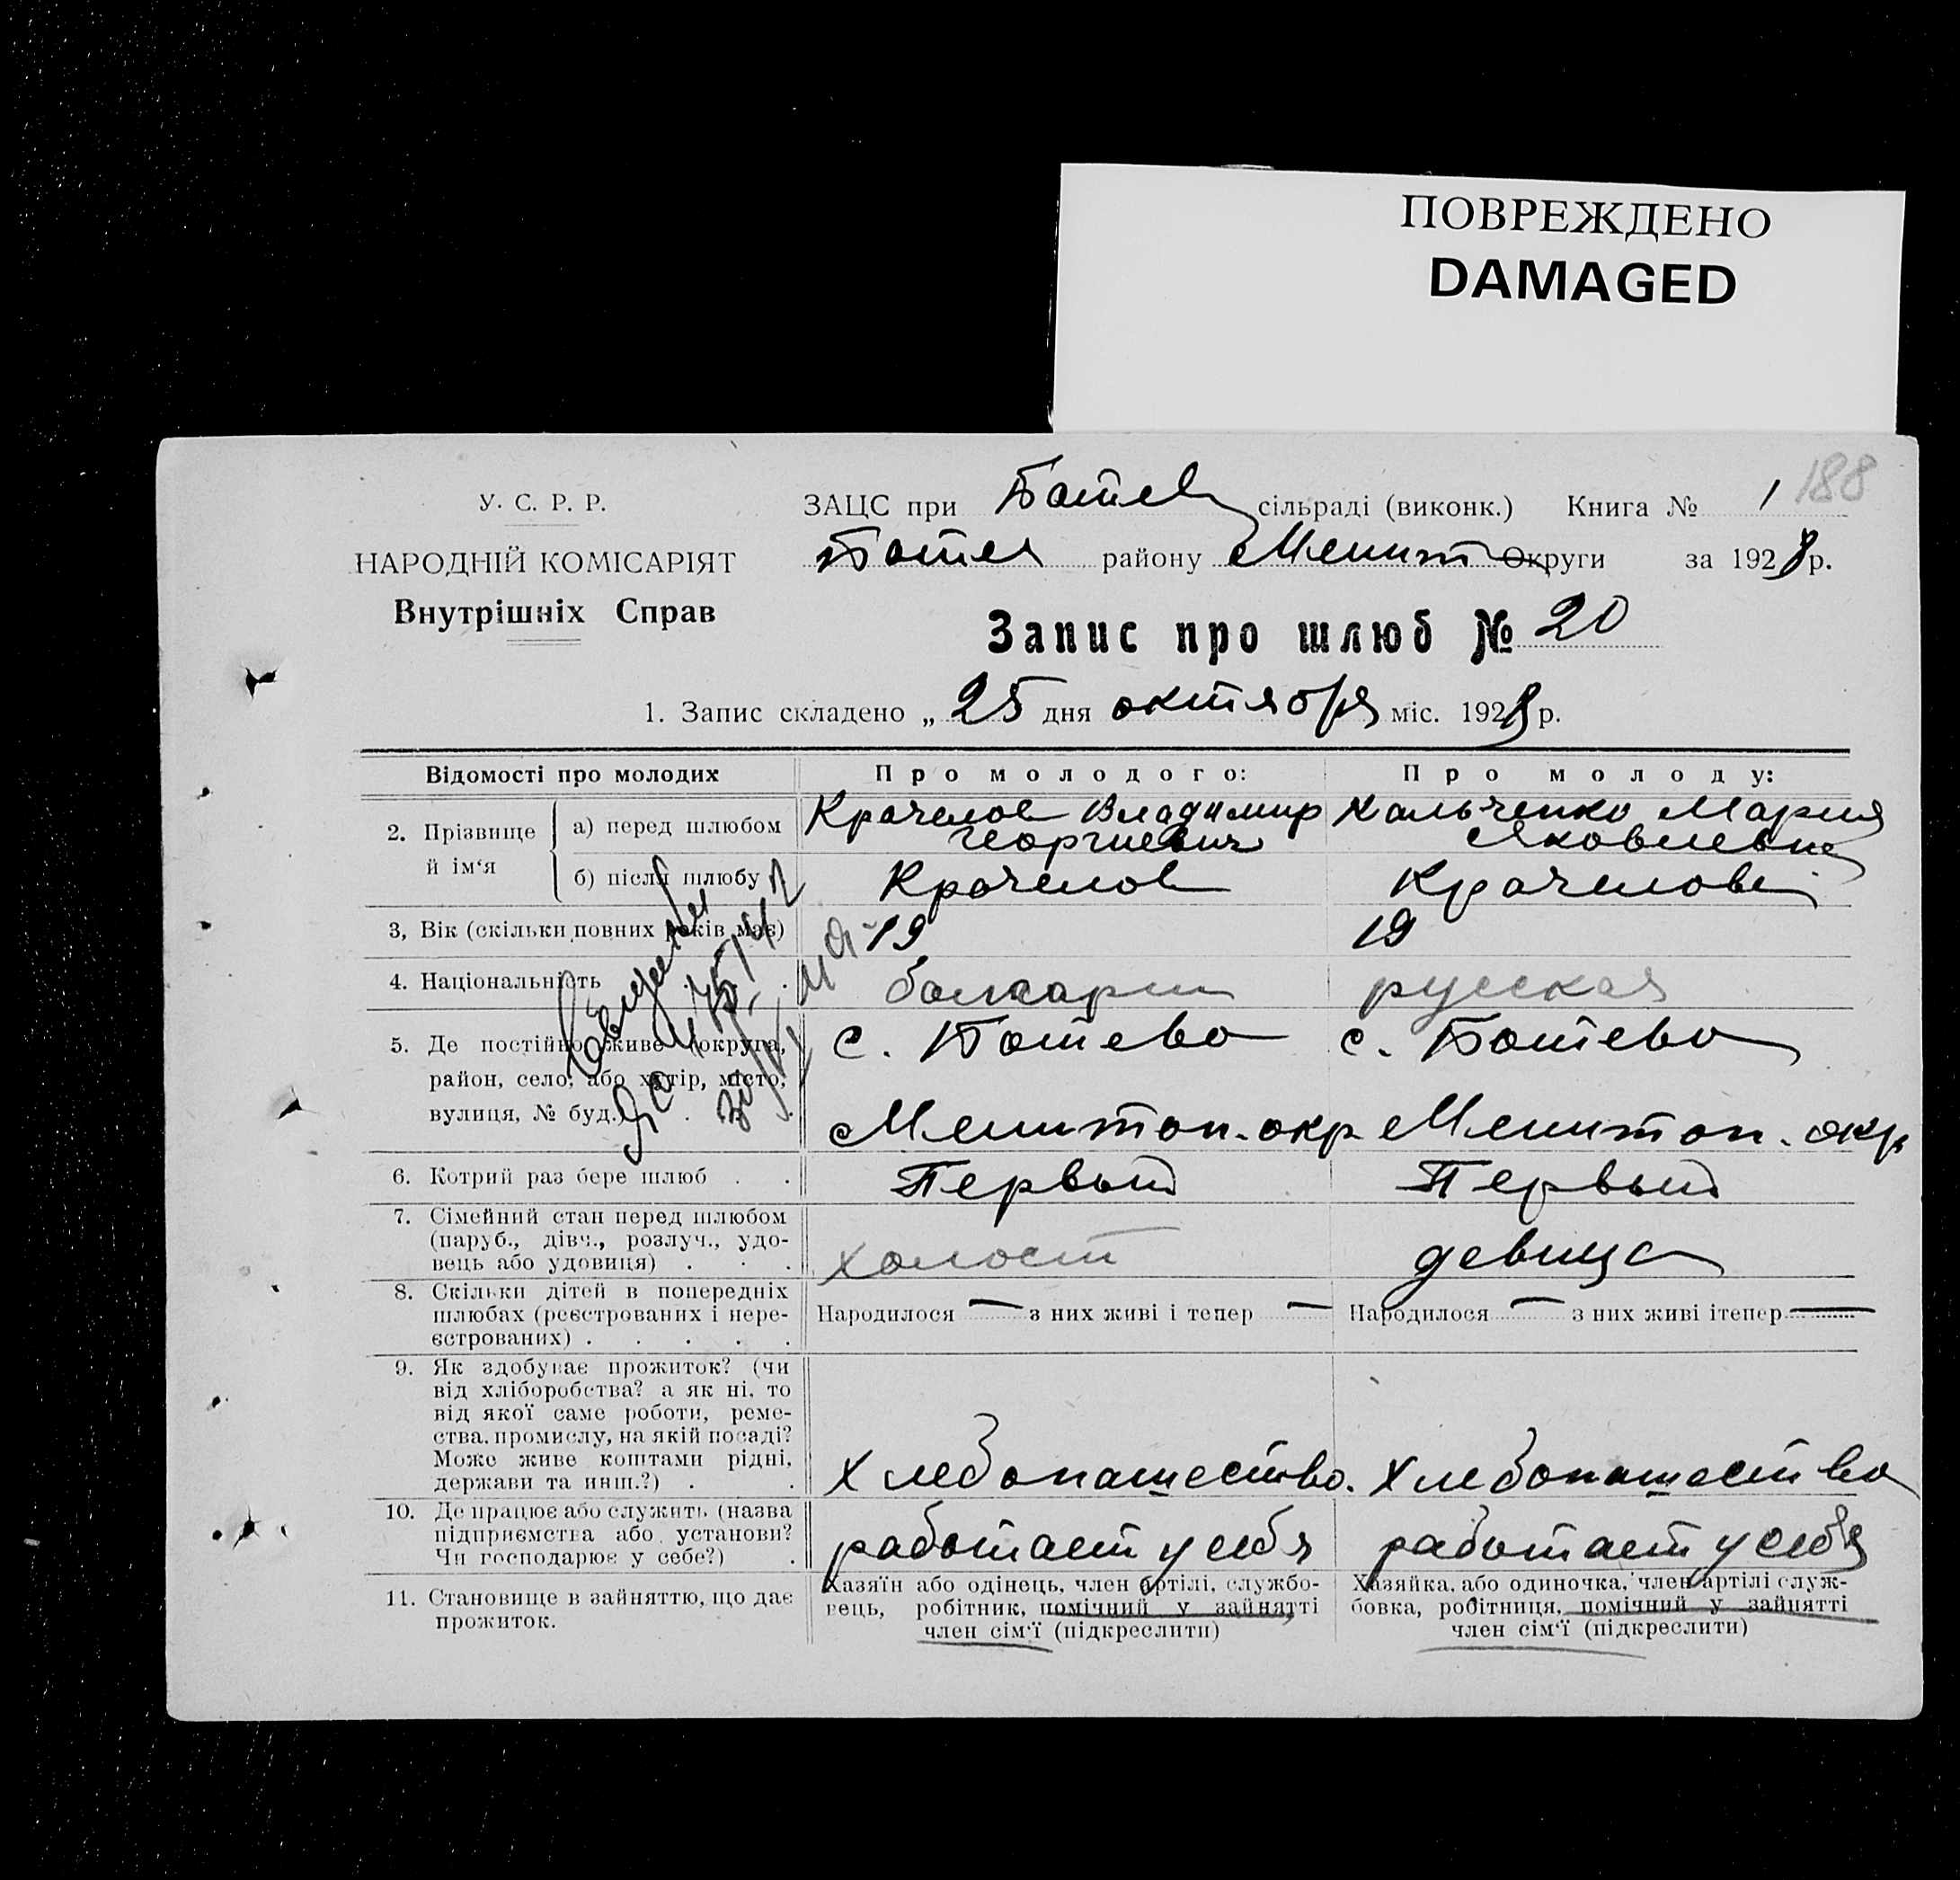 ПОВРЕЖДЕНО
DAMAGED
188
У. С. Р. Р.
НАРОДНІЙ КОМІСАРІЯТ
Внутрішніх Справ
ЗАЦС при Ботев сільраді (виконк.) Книга № 1
Ботев району Мелит Округи за 1928 р.
Запис про шлюб № 20
1. Запис складено „ 25 дня октября міс. 1928 р.
Відомості про молодих
Про молодого:
Про молоду:
2. Прізвище й ім‘я
а) перед шлюбом
Крачелов Владимир
Георгиевич
Хальченко Мария
Яковлевна
б) після шлюбу
Крачелов
Крачелова
3, Вік (скільки повних років має)
19
19
4. Національність
болгарин
русская
5. Де постійно живе (округа,
район, село, або хутір, місто,
вулиця, № буд.)
с. Ботево
Мелитоп. окр
с. Ботево
Мелитоп. окр
6. Котрий раз бере шлюб . .
Первый
Первый
7. Сімейний стан перед шлюбом
(паруб., дівч., розлуч., удо-
вець або удовиця) . . .
холост
девица
8. Скільки дітей в попередніх
шлюбах (реєстрованих і нере-
єстрованих) . . . . .
Народилося — з них живі і тепер —
Народилося — з них живі ітепер —
9. Як здобуває прожиток? (чи
від хліборобства? а як ні, то
від якої саме роботи, реме-
ства, промислу, на якій посаді?
Може живе коштами рідні,
держави та инш.?) . .
Хлебопашество.
Хлебопашество
10. Де працює або служить (назва
підприємства або установи?
Чи господарює у себе?) .
работает у себя
работает у себя
11. Становище в зайняттю, що дає
прожиток.
Хазяїн або одінець, член артілі, службо-
вець, робітник, помічний у зайнятті
член сім‘ї (підкреслити)
Хазяйка, або одиночка, член артілі служ-
бовка, робітниця, помічний у зайнятті
член сім‘ї (підкреслити)